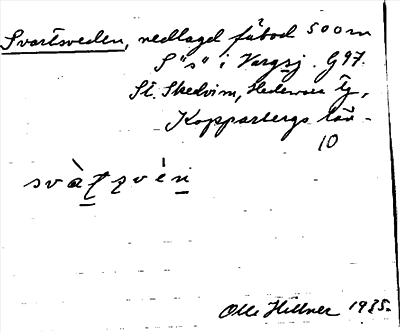 Svartsveden, nedlagd fäbod 500 m
S "s" i Vargsj. G 97.
St. Skedvi sn, Hedemora tg,
Kopparbergs län.
10
Olle Hillner 1935.